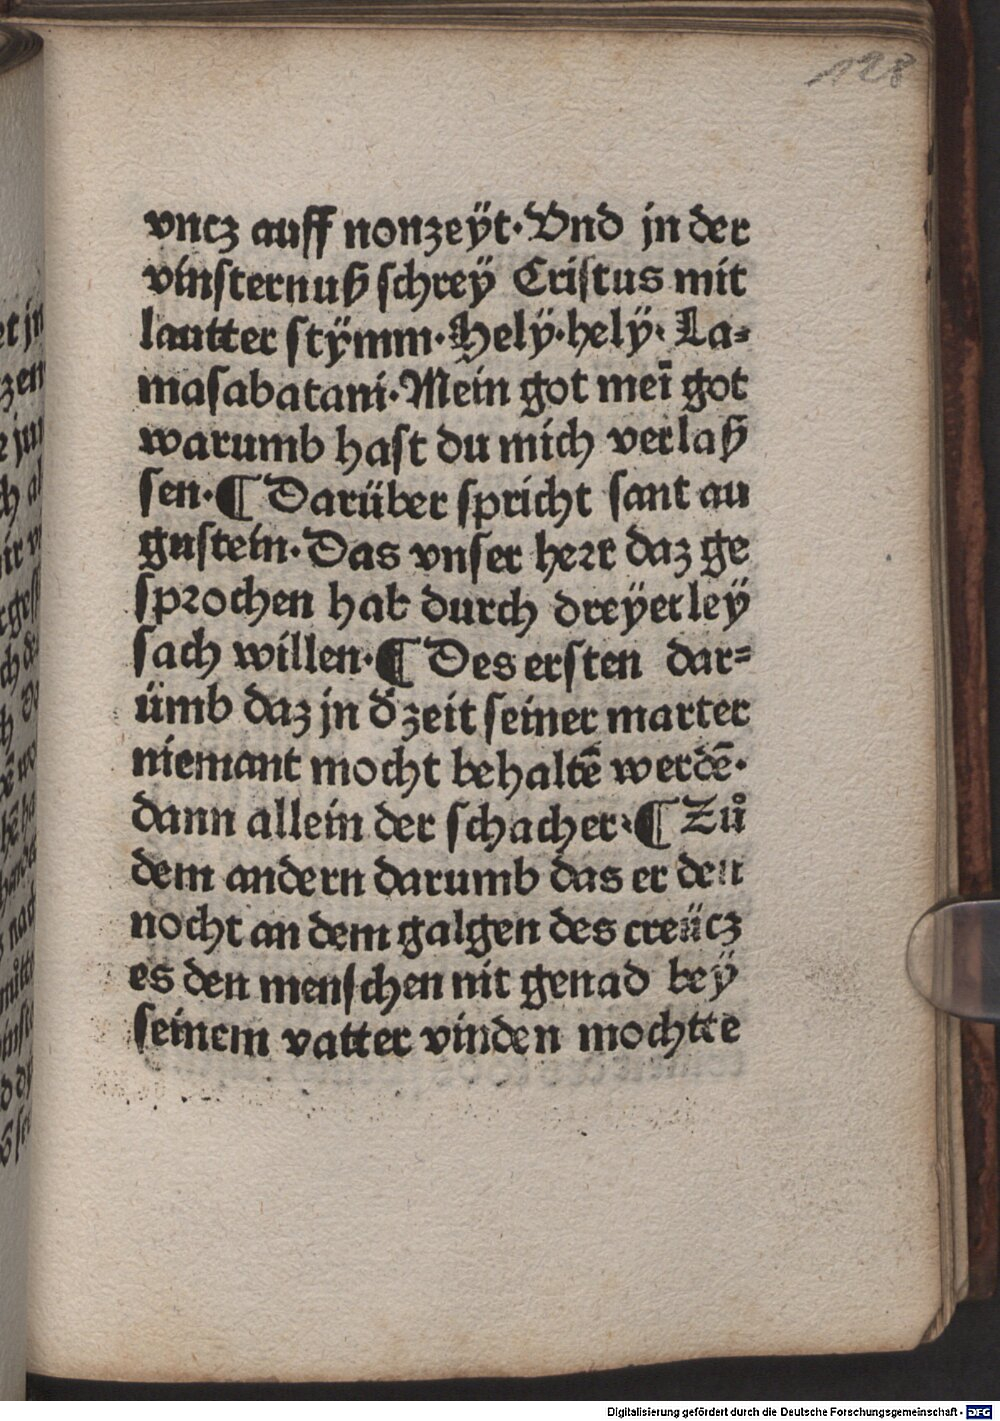 128
vncz auff nonzeÿt. Vnd jn der
vinsternuß schreÿ Cristus mit
lautter stÿmm. Helÿ. helÿ. La⸗
masabatani. Mein got mei̅ got
warumb hast du mich verlaß
sen. ¶ Darüber spricht sant au
gustein. Das vnser herr daz ge
sprochen hab durch dreÿerleÿ
sach willen. ¶ Des ersten dar⸗
ümb daz jn d̕ zeit seiner marter
niemant mocht behalte̅ werde̅.
dann allein der schacher. ¶ Zů
dem andern darumb das er den
nocht an dem galgen des creücz
es den menschen nit genad beÿ
seinem vatter vinden mochtte
Digitalisierung gefördert durch die Deutsche Forschungsgemeinschaft - DFG